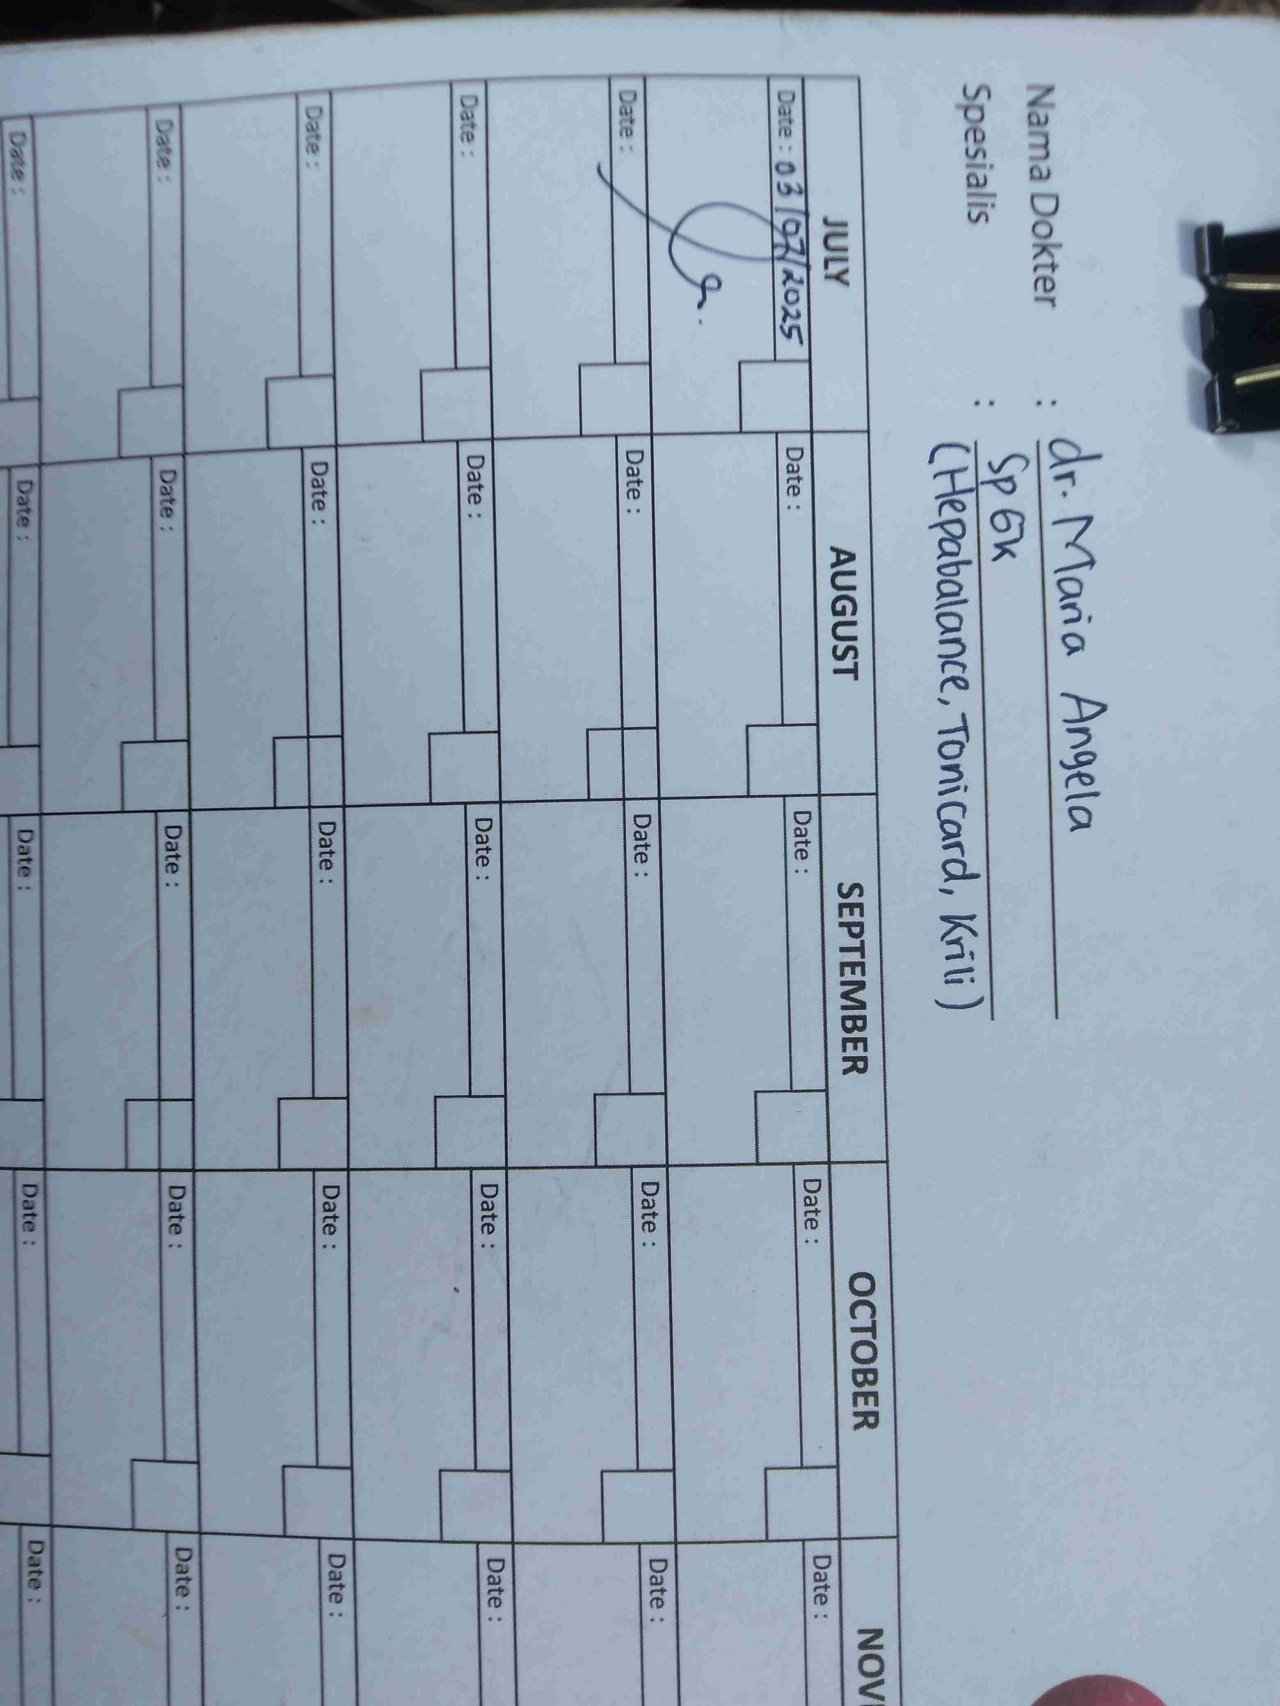 Nama Dokter : dr. Maria Angela
Spesialis : Sp GK
(Hepabalance, Tonicard, Krili)
JULY AUGUST SEPTEMBER OCTOBER
Date : 03/07/2025 Date : Date : Date : Date :
Date : Date : Date : Date : Date :
Date : Date : Date : Date : Date :
Date : Date : Date : Date : Date :
Date : Date : Date : Date : Date :
Date : Date : Date : Date : Date :